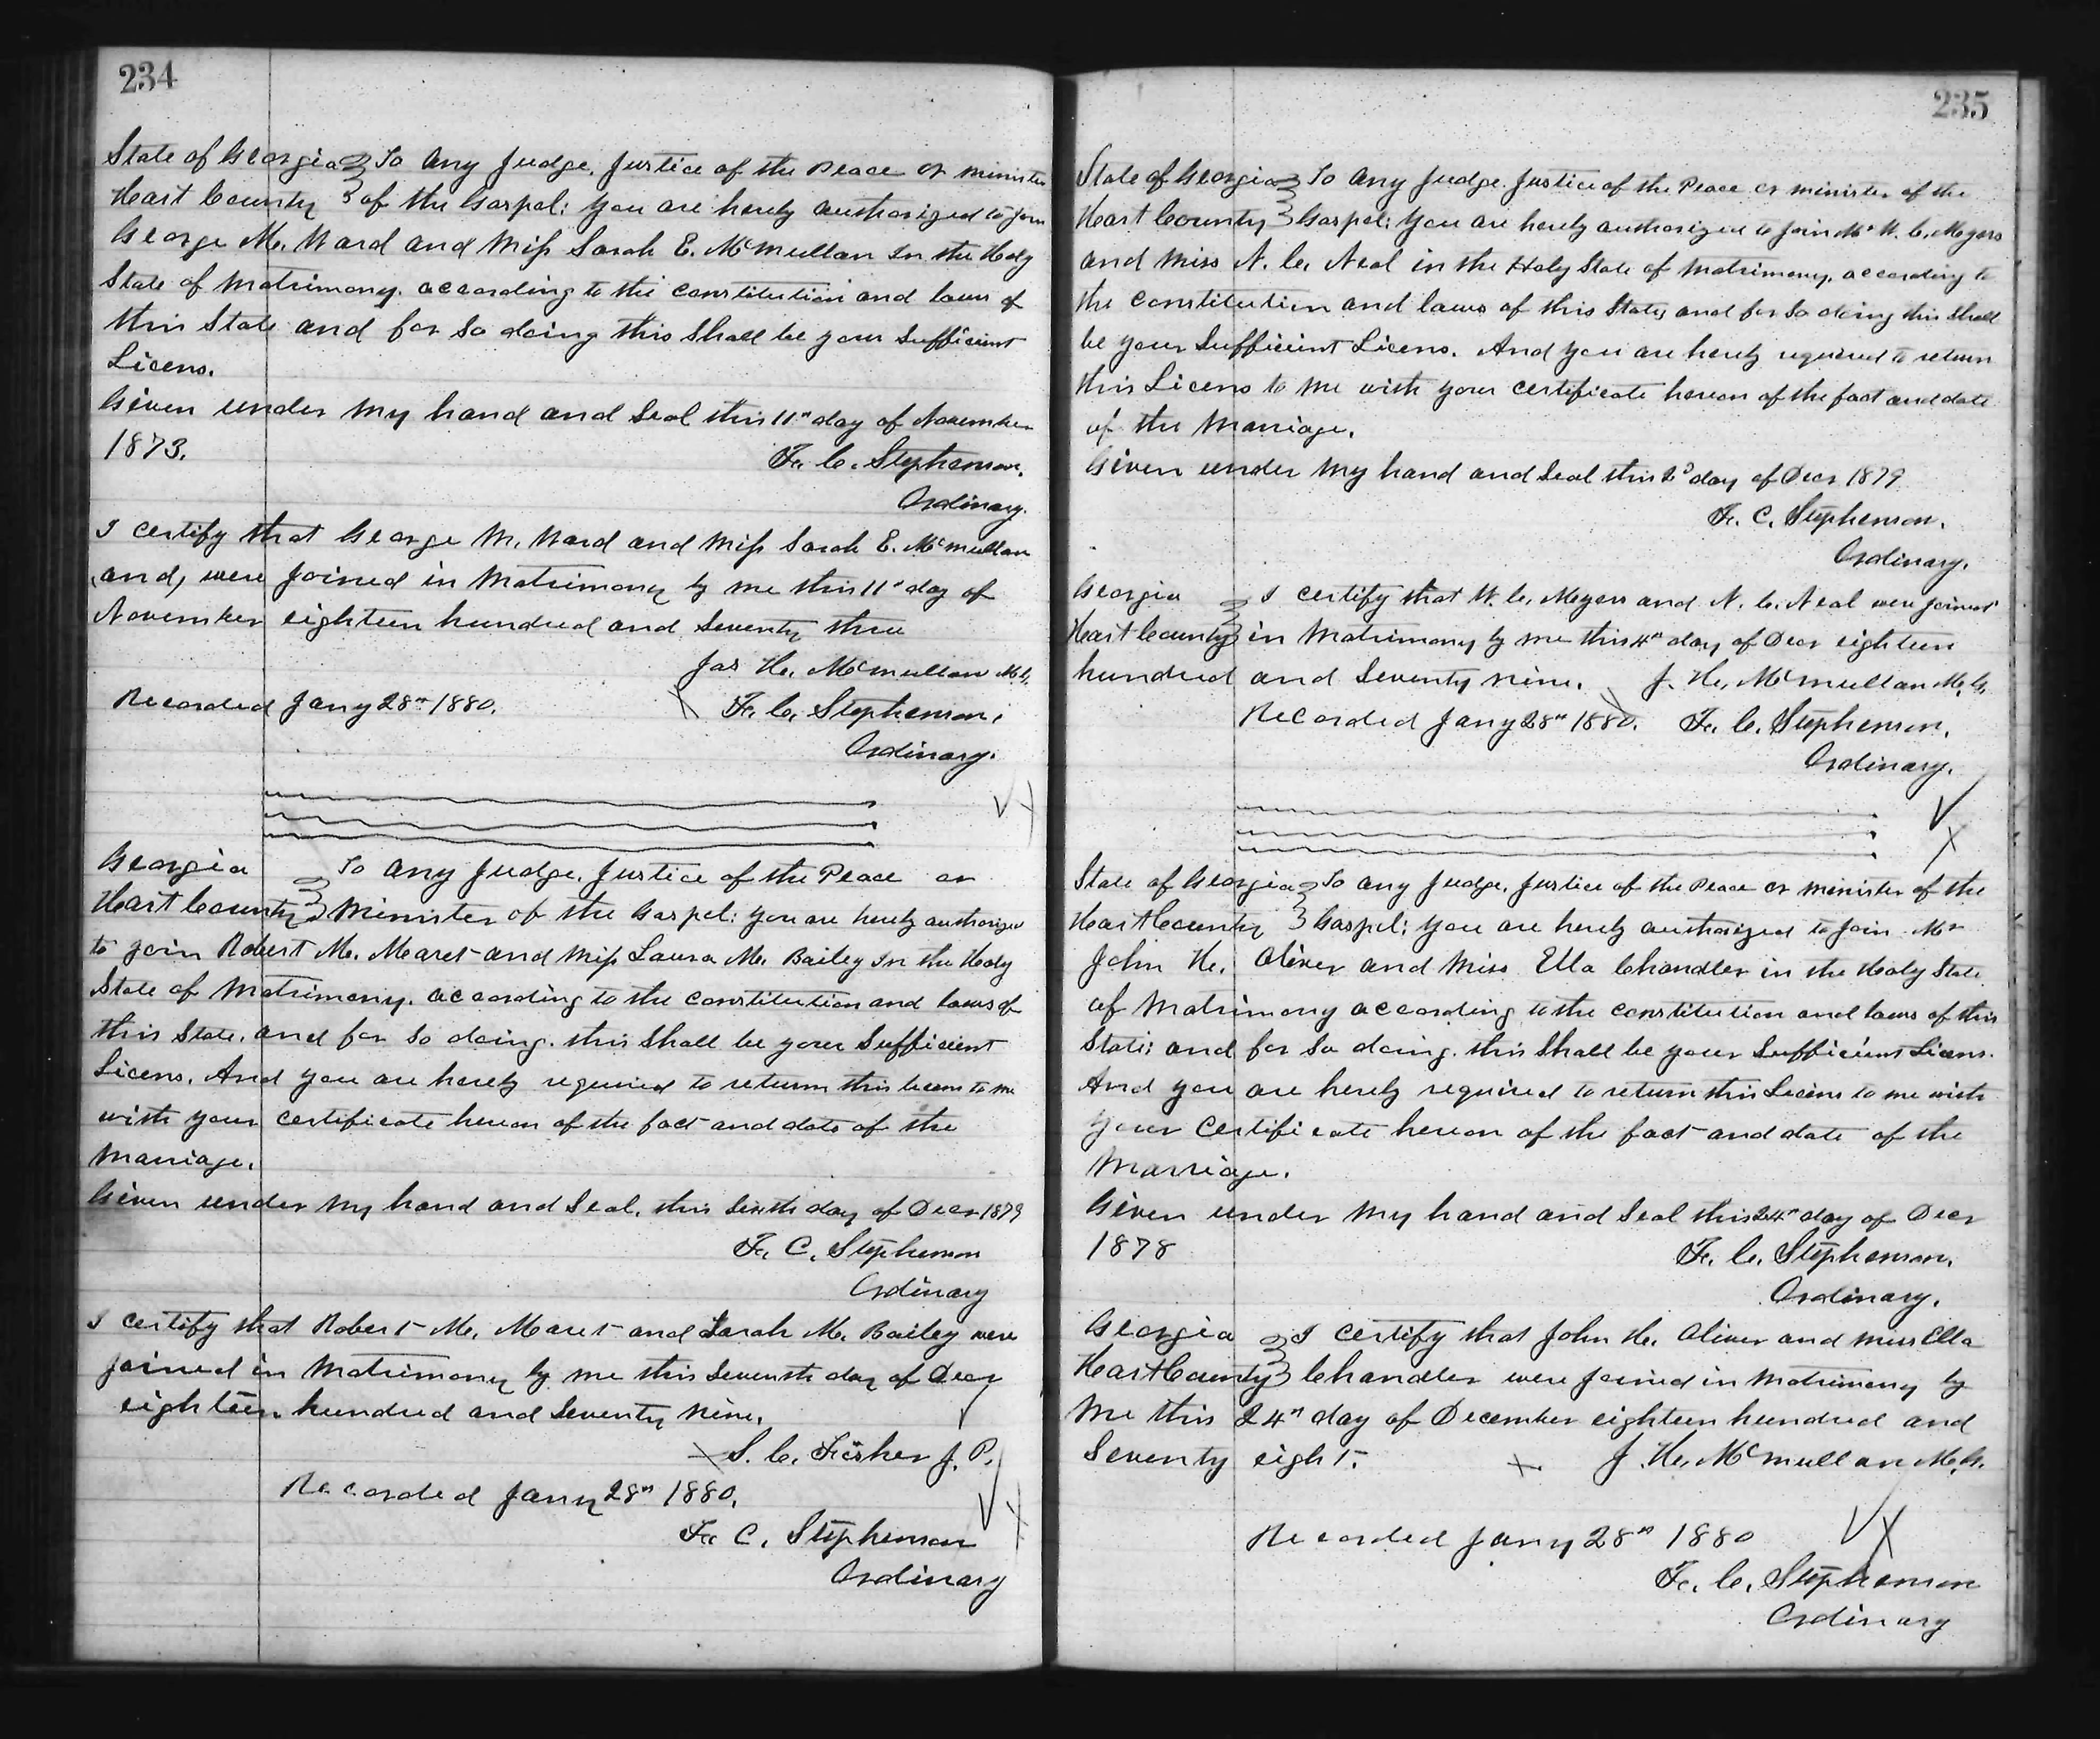 234
State of Georgia } To any Judge, Justice of the Peace or minister
Hart County } of the Gospel: you are hereby authorized to join
George M. Ward and Miss Sarah E. McMullan In the Holy
State of Matrimony. according to the constitution and laws of
this State and for so doing this shall be your sufficient
Licens.
Given under my hand and seal this 11th day of November
1873.
F. C. Stephenson.
Ordinary.
I certify that George M. Ward and Miss Sarah E. McMullan
and, were joined in Matrimony by me this 11th day of
November eighteen hundred and seventy three
Jas H. McMullan M.G.
Recorded Jany 28th 1880.
F. C. Stephenson.
Ordinary.
Georgia } To any Judge, Justice of the Peace or
Hart County } Minister of the Gospel: you are hereby authorized
to join Robert M. Maret and Miss Laura M. Bailey In the Holy
State of Matrimony. according to the constitution and laws of
this State, and for so doing. this shall be your sufficient
Licens. And you are hereby required to return this licens to me
with your certificate hereon of the fact and date of the
Marriage.
Given under my hand and Seal, this sixth day of Decr 1879
F. C. Stephenson
Ordinary
I certify that Robert M. Maret and Sarah M. Bailey were
joined in Matrimony by me this Seventh day of Decr
eighteen hundred and Seventy nine.
S. C. Fisher J. P.
Recorded Jany 28th 1880.
F. C. Stephenson
Ordinary
235
State of Georgia } To any Judge, Justice of the Peace or minister of the
Hart County } Gospel: you are hereby authorized to join Mr W. C. Meyers
and Miss N. C. Neal in the Holy State of Matrimony, according to
the constitution and laws of this State, and for so doing this shall
be your Sufficient Licens. And you are hereby required to return
this Licens to me with your certificate hereon of the fact and date
of the Marriage.
Given under my hand and Seal this 2d day of Decr 1879
F. C. Stephenson.
Ordinary.
Georgia } I certify that W. C. Meyers and N. C. Neal were joined
Hart County } in Matrimony by me this 4th day of Decr eighteen
hundred and Seventy nine. J. H. McMullan M.G.
Recorded Jany 28th 1880. F. C. Stephenson.
Ordinary.
State of Georgia } To any Judge, Justice of the Peace or minister of the
Hart County } Gospel: you are hereby authorized to join Mr
John H. Oliver and Miss Ella Chandler in the Holy State
of Matrimony according to the constitution and laws of this
State: and for so doing. this Shall be your Sufficient Licens.
And you are hereby required to return this Licens to me with
your Certificate hereon of the fact and date of the
Marriage.
Given under my hand and Seal this 24th day of Decr
1878
F. C. Stephenson.
Ordinary.
Georgia } I certify that John H. Oliver and miss Ella
Hart County } Chandler were joined in Matrimony by
me this 24th day of December eighteen hundred and
Seventy eight. J. H. McMullan M.G.
Recorded Jany 28th 1880
F. C. Stephenson
Ordinary